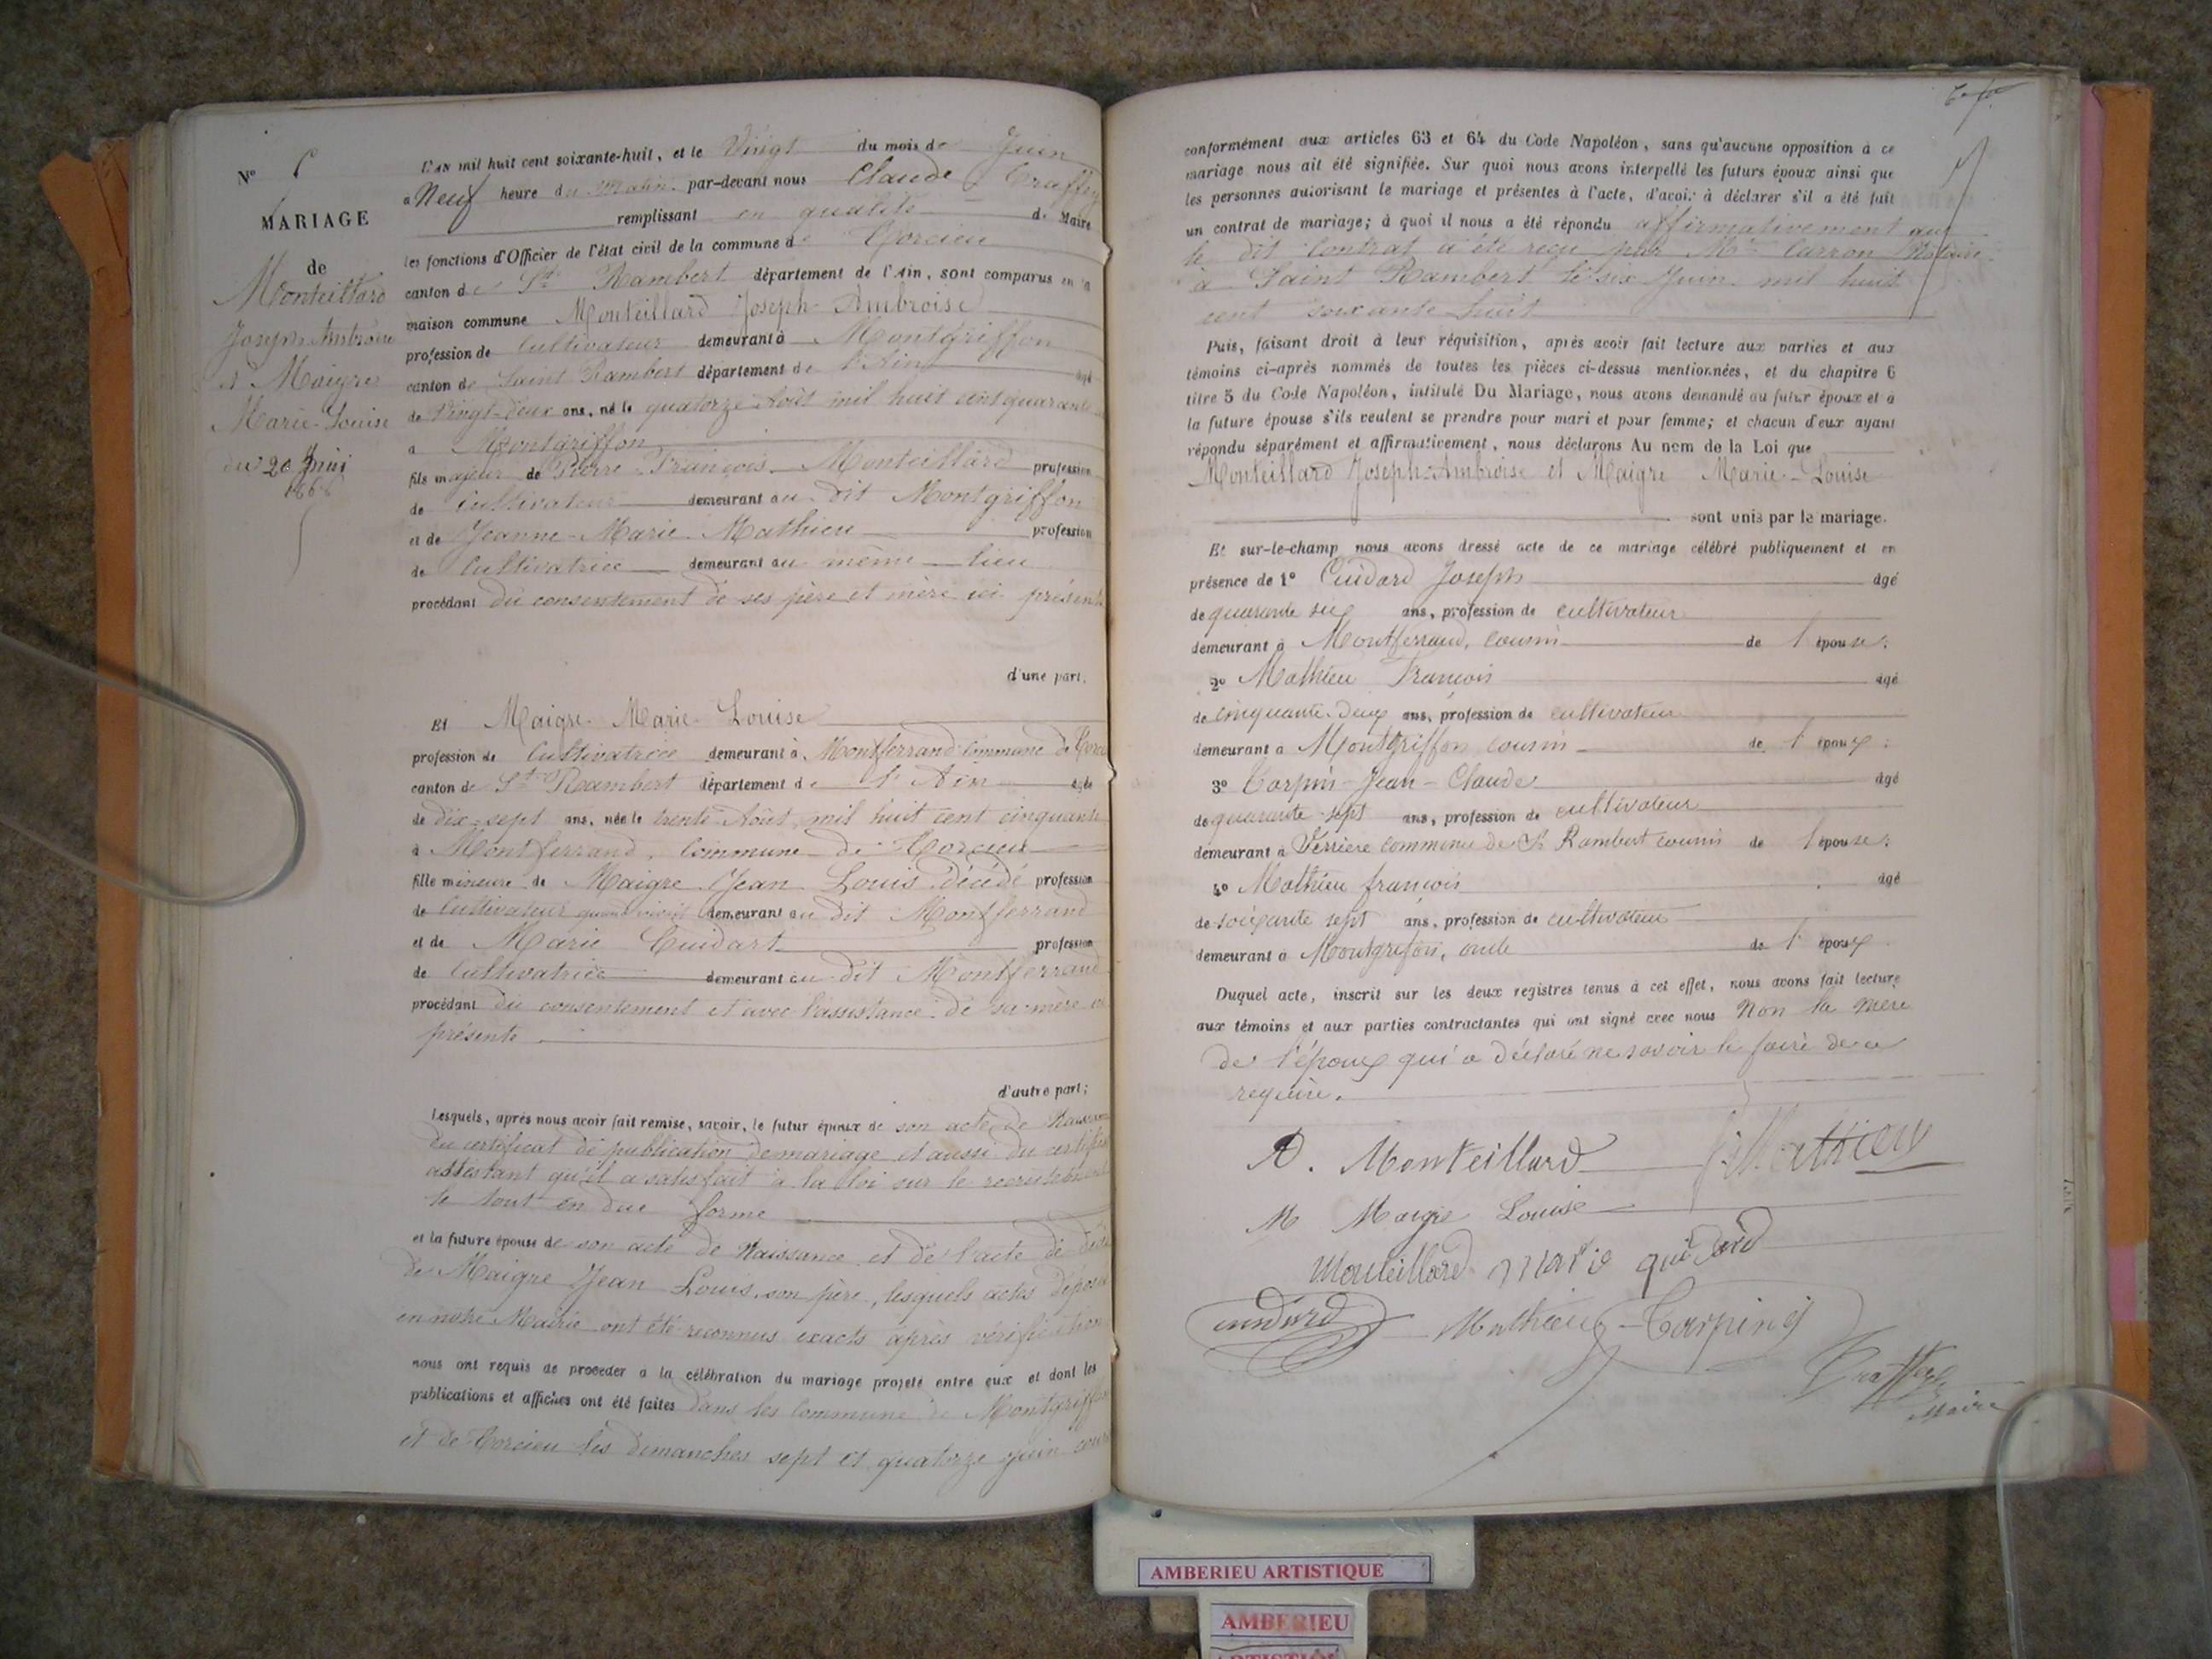 N° 6
MARIAGE
de
Monteillard
Joseph-Ambroise
et Maigre
Marie-Louise
du 20 Juin
1868
L'an mil huit cent soixante-huit, et le Vingt du mois de Juin
à Neuf heure du Matin par-devant nous Claude Traffay
remplissant en qualité de Maire
les fonctions d'Officier de l'état civil de la commune de Torcieu
canton de St Rambert département de l'Ain, sont comparus en la
maison commune Monteillard Joseph-Ambroise
profession de Cultivateur demeurant à Montgriffon
canton de Saint Rambert département de l'Ain âgé
de Vingt-deux ans, né le quatorze Août mil huit cent quarante
à Montgriffon
fils majeur de Pierre-François Monteillard profession
de Cultivateur demeurant au dit Montgriffon
et de Jeanne-Marie Mathieu profession
de Cultivatrice demeurant au même lieu
procédant du consentement de ses père et mère ici présents
d'une part,
Et Maigre Marie-Louise
profession de Cultivatrice demeurant à Montferrand Commune de Torcieu
canton de St Rambert département de l'Ain âgée
de dix-sept ans, née le trente Août mil huit cent cinquante
à Montferrand, Commune de Torcieu
fille mineure de Maigre Jean Louis décédé profession
de Cultivateur quand vivait demeurant au dit Montferrand
et de Marie Cuidart profession
de Cultivatrice demeurant au dit Montferrand
procédant du consentement et avec l'assistance de sa mère ici
présente
d'autre part;
Lesquels, après nous avoir fait remise, savoir, le futur époux de son acte de Naissance
du certificat de publication de mariage et aussi du certificat
attestant qu'il a satisfait à la loi sur le recrutement
le tout en due forme
et la future épouse de son acte de Naissance et de l'acte de décès
de Maigre Jean Louis, son père, lesquels actes déposés
en notre Mairie ont été reconnus exacts après vérification
nous ont requis de procéder à la célébration du mariage projeté entre eux et dont les
publications et affiches ont été faites dans les Commune de Montgriffon
et de Torcieu les dimanches sept et quatorze juin cour
conformément aux articles 63 et 64 du Code Napoléon, sans qu'aucune opposition à ce
mariage nous ait été signifiée. Sur quoi nous avons interpellé les futurs époux ainsi que
les personnes autorisant le mariage et présentes à l'acte, d'avoir à déclarer s'il a été fait
un contrat de mariage; à quoi il nous a été répondu affirmativement que
le dit Contrat a été reçu par Me Carron Notaire
à Saint Rambert le six Juin mil huit
cent soixante huit
Puis, faisant droit à leur réquisition, après avoir fait lecture aux parties et aux
témoins ci-après nommés de toutes les pièces ci-dessus mentionnées, et du chapitre 6
titre 5 du Code Napoléon, intitulé Du Mariage, nous avons demandé au futur époux et à
la future épouse s'ils veulent se prendre pour mari et pour femme; et chacun d'eux ayant
répondu séparément et affirmativement, nous déclarons Au nom de la Loi que
Monteillard Joseph-Ambroise et Maigre Marie-Louise
sont unis par le mariage.
Et sur-le-champ nous avons dressé acte de ce mariage célébré publiquement et en
présence de 1° Cuidard Joseph âgé
de quarante six ans, profession de cultivateur
demeurant à Montferrand, cousin de l'épouse;
2° Mathieu François âgé
de cinquante-deux ans, profession de cultivateur
demeurant à Montgriffon cousin de l'époux;
3° Carpin-Jean-Claude âgé
de quarante sept ans, profession de cultivateur
demeurant à Serrière commune de St Rambert cousin de l'épouse;
4° Mathieu françois âgé
de soixante sept ans, profession de cultivateur
demeurant à Montgrifon, oncle de l'époux
Duquel acte, inscrit sur les deux registres tenus à cet effet, nous avons fait lecture
aux témoins et aux parties contractantes qui ont signé avec nous Non la mère
de l'époux qui a déclaré ne savoir le faire de ce
requise.
A. Monteillard Mathieu
M Maigre Louise
Monteillard marie quidard
cuidard Mathieu Carpin
Traffay
Maire
AMBERIEU ARTISTIQUE
AMBERIEU
ARTISTIQUE